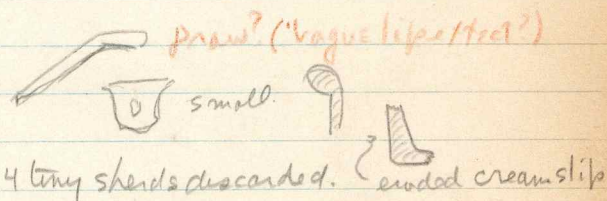 draw? ('vague lip effect?')
small.
4 tiny sherds discarded.
eroded cream slip